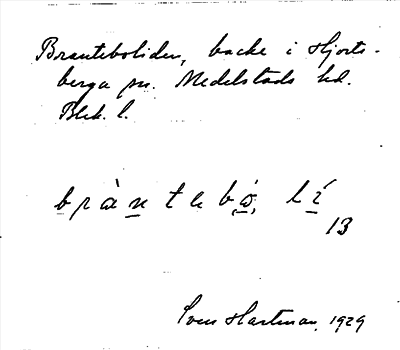 Branteboliden, backe i Hjorts-
berga sn. Medelstads hd.
Blek. l.
bràntebó, lí
13
Sven Hartman, 1929